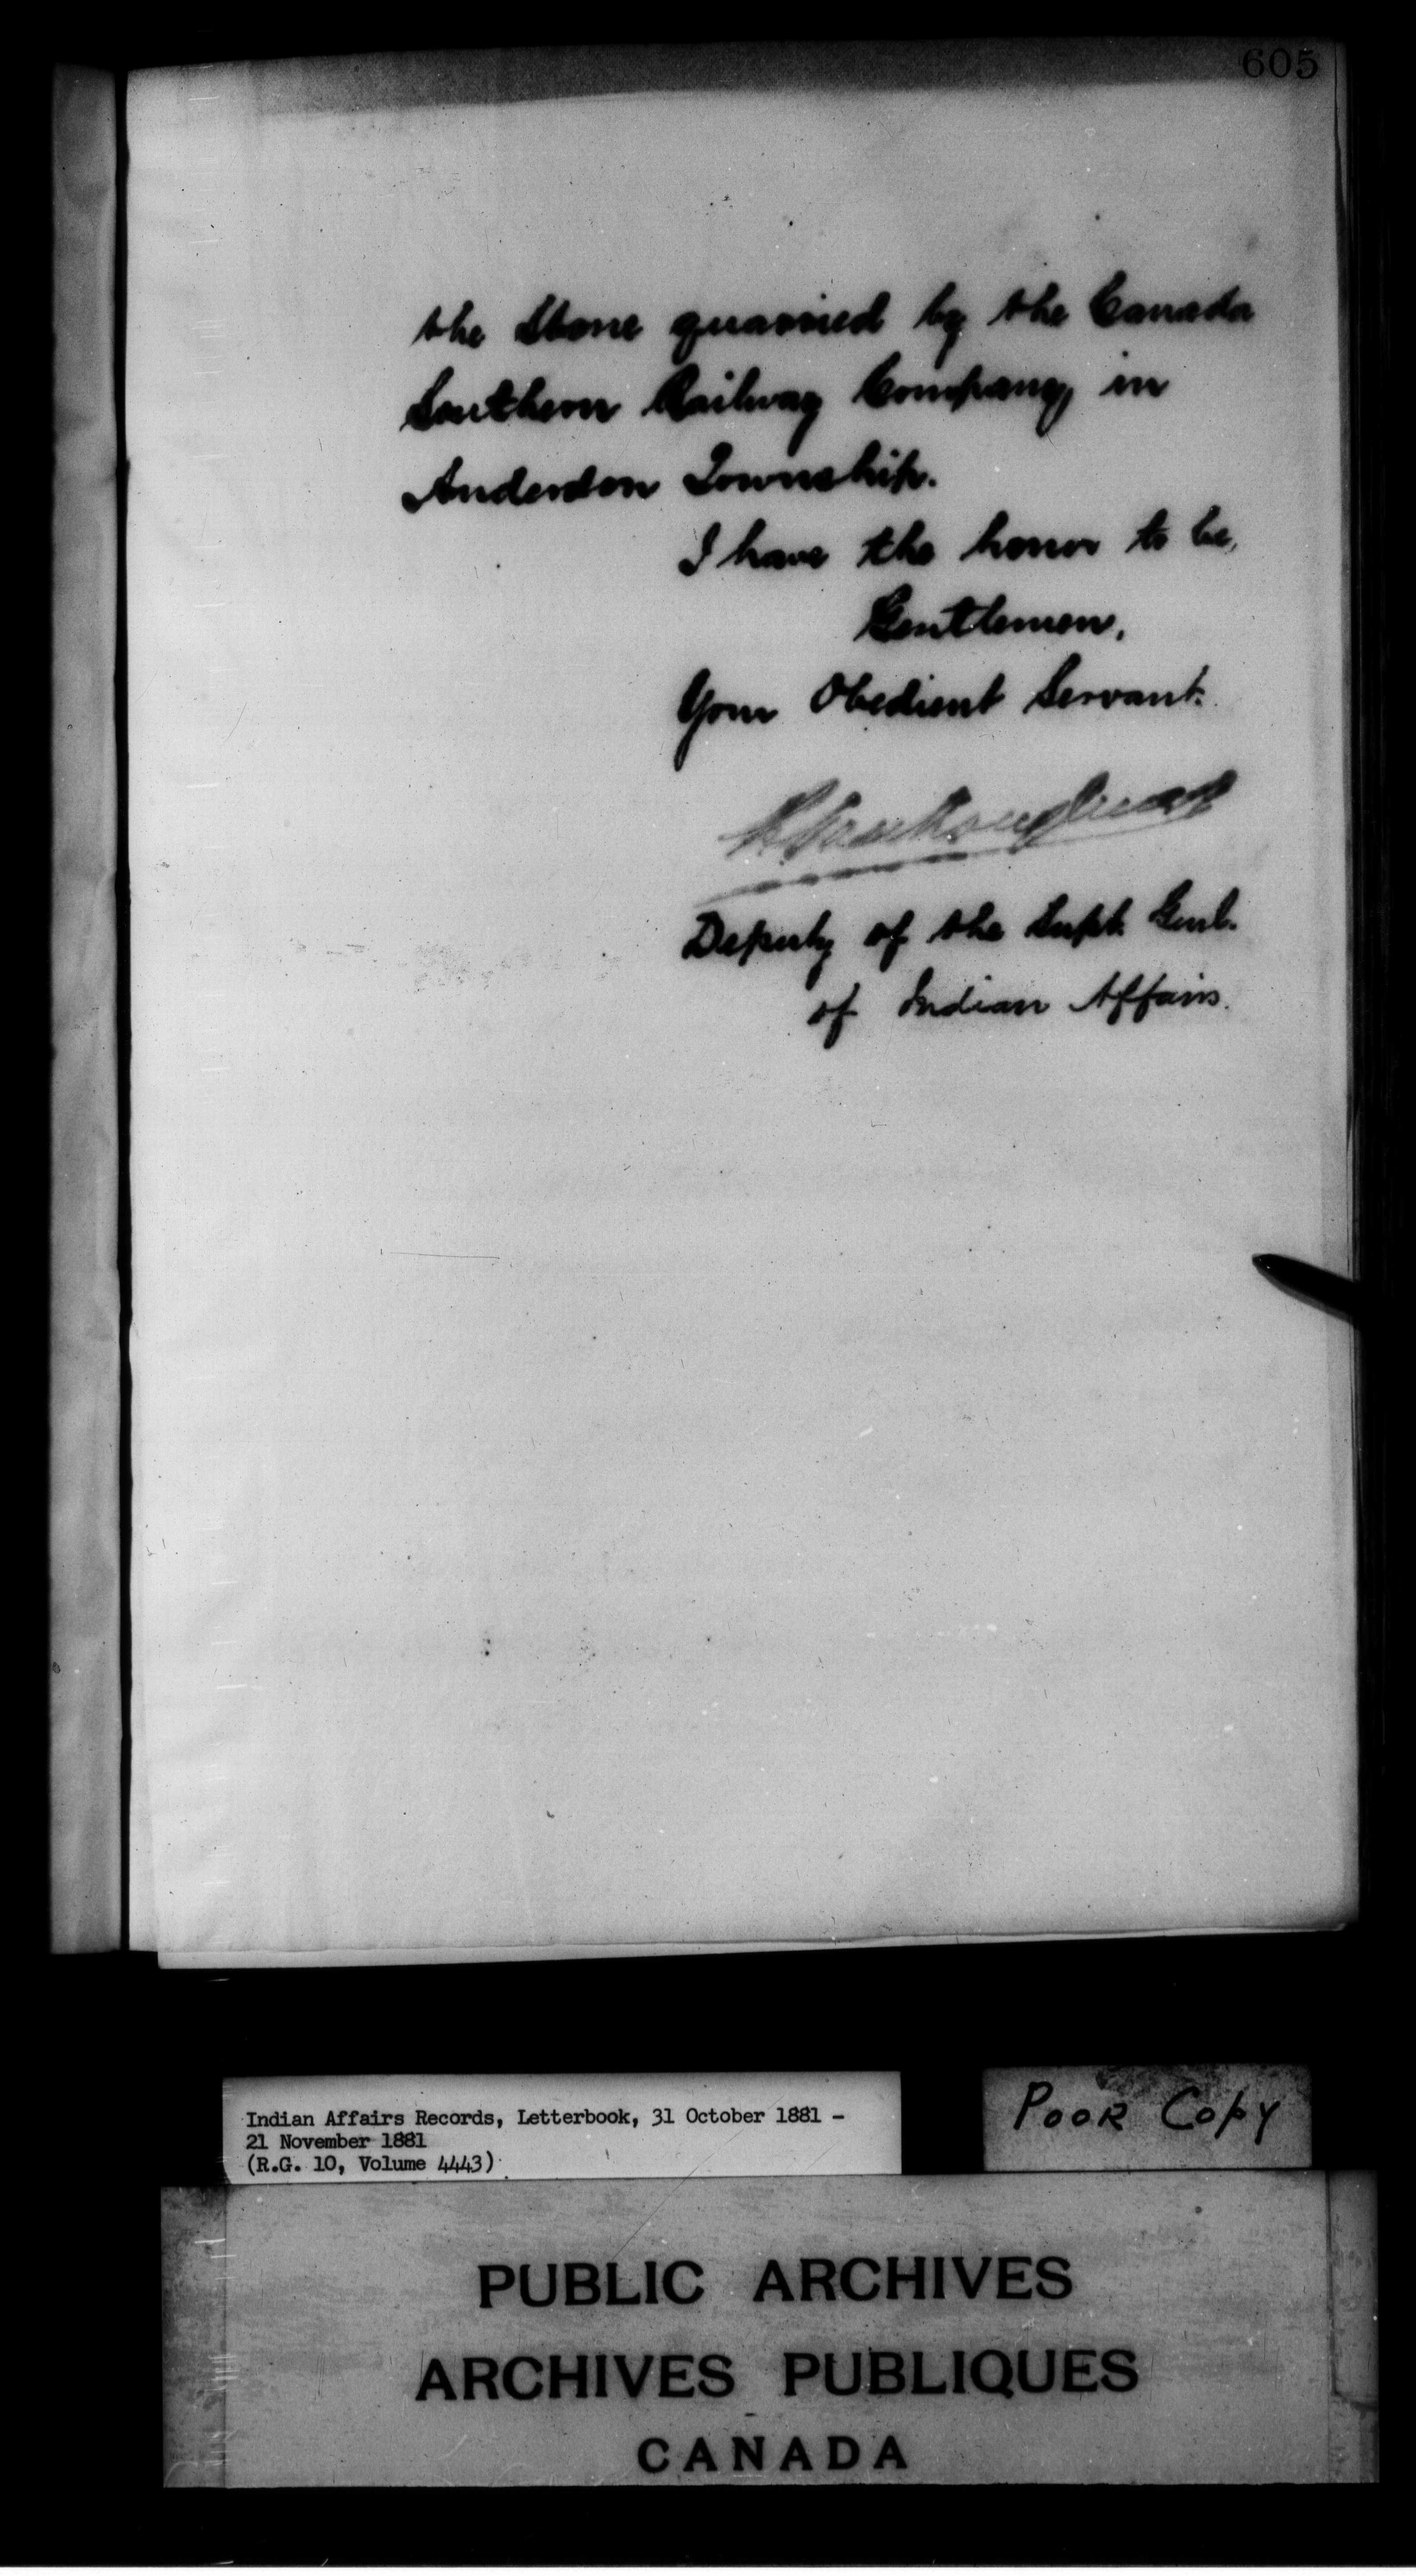 605
the Stone quarried by the Canada
Southern Railway Company, in
Anderdon Township.
I have the honor to be,
Gentlemen,
Your Obedient Servant.
L Vankoughnet
Deputy of the Supt. Genl.
of Indian Affairs.
Indian Affairs Records, Letterbook, 31 October 1881 -
21 November 1881
(R.G. 10, Volume 4443)
POOR COPY
PUBLIC ARCHIVES
ARCHIVES PUBLIQUES
CANADA